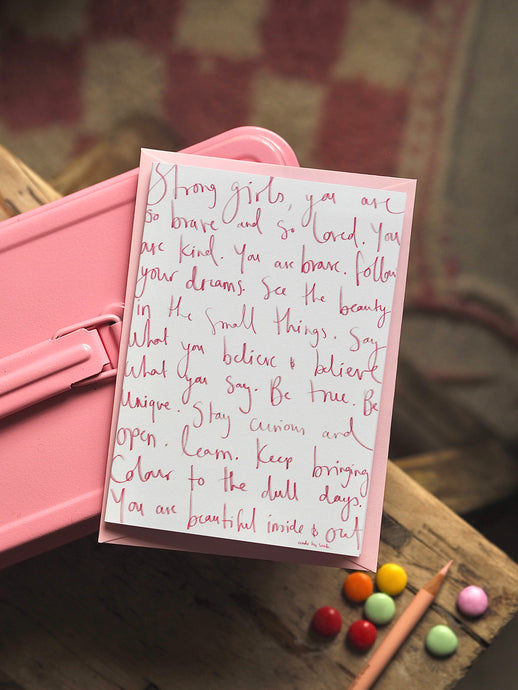 Strong girls, you are
so brave and so loved. You
are kind. You are brave. Follow
your dreams. See the beauty
in the small things. Say
what you believe & believe
what you say. Be true. Be
unique. Stay curious and
open. Learn. Keep bringing
Colour to the dull days.
You are beautiful inside & out